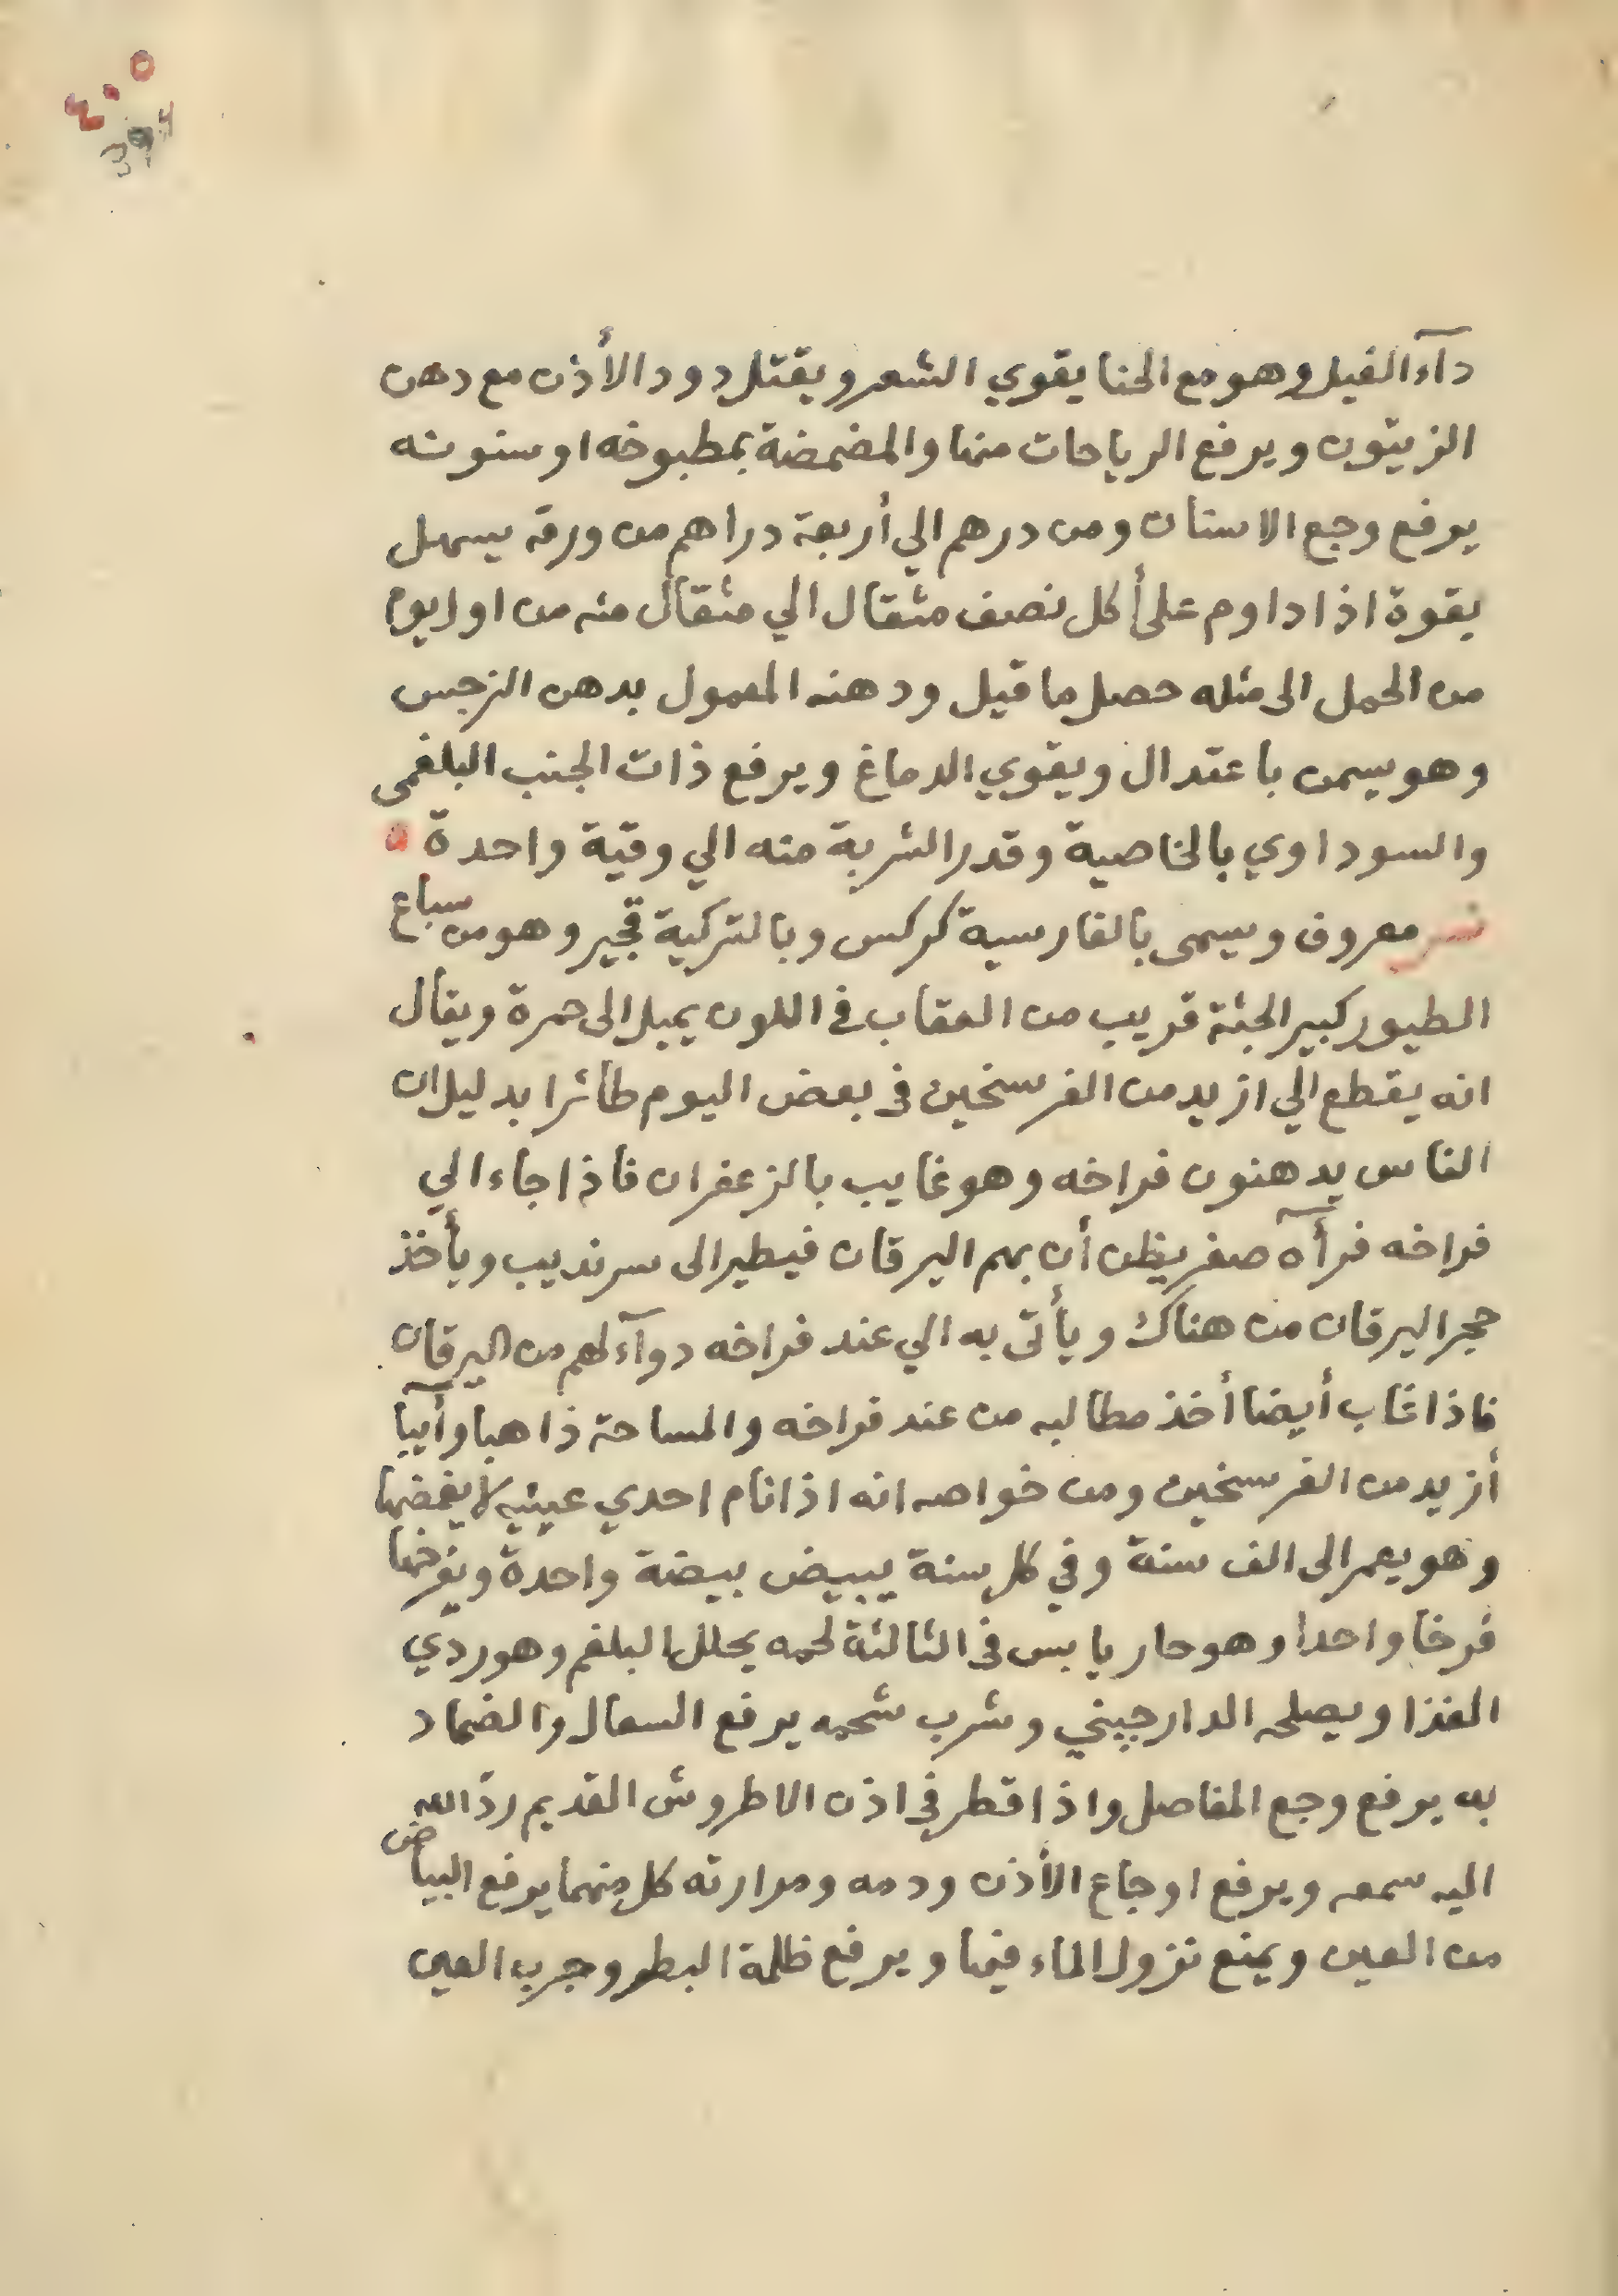 ٤٠٥
394
دآء الفيل وهو مع الحنا يقوي الشعر ويقتل دود الأذن مع دهن
الزيتون ويرفع الرياحات منها والمضمضة بمطبوخه او سنونه
يرفع وجع الاسنان ومن درهم الي أربعة دراهم من ورقه يسهل
بقوة اذا داوم على أكل نصف مثقال الي مثقال منه من اول يوم
من الحمل الى مثله حصل ما قيل ودهنه المعمول بدهن النرجس
وهو يسمن باعتدال ويقوي الدماغ ويرفع ذات الجنب البلغمى
والسوداوي بالخاصية وقدر الشربة منه الي وقية واحدة
نسر معروف ويسمى بالفارسية كركس وبالتركية قجير وهو من سباع
الطيور كبير الجثة قريب من العقاب في اللون يميل الى حمرة ويقال
انه يقطع الي ازيد من الفرسخين في بعض اليوم طائرا بدليل ان
الناس يدهنون فراخه وهو غايب بالزعفران فاذا جاء الي
فراخه فرآه صفر يظن أن بهم اليرقان فيطير الى سرنديب ويأخذ
حجر اليرقان من هناك ويأتى به الي عند فراخه دوآء لهم من اليرقان
فاذا غاب أيضا أخذ مطالبه من عند فراخه والمساحة ذاهبا وآيبا
أزيد من الفرسخين ومن خواصه انه اذا نام احدي عينيه لا يغمضها
وهو يعمر الى الف سنة وفي كل سنة يبيض بيضة واحدة ويفرخها
فرخا واحدا وهو حار يابس في الثالثة لحمه يحلل البلغم وهو ردي
الغذا ويصلحه الدارچيني وشرب شحمه يرفع السعال والضماد
به يرفع وجع المفاصل واذا قطر في اذن الاطروش القديم ردّ الله
اليه سمعه ويرفع اوجاع الأذن ودمه ومرارته كل منهما يرفع البياض
من العين ويمنع نزول الماء فيها ويرفع ظلمة البطر وجرب العين